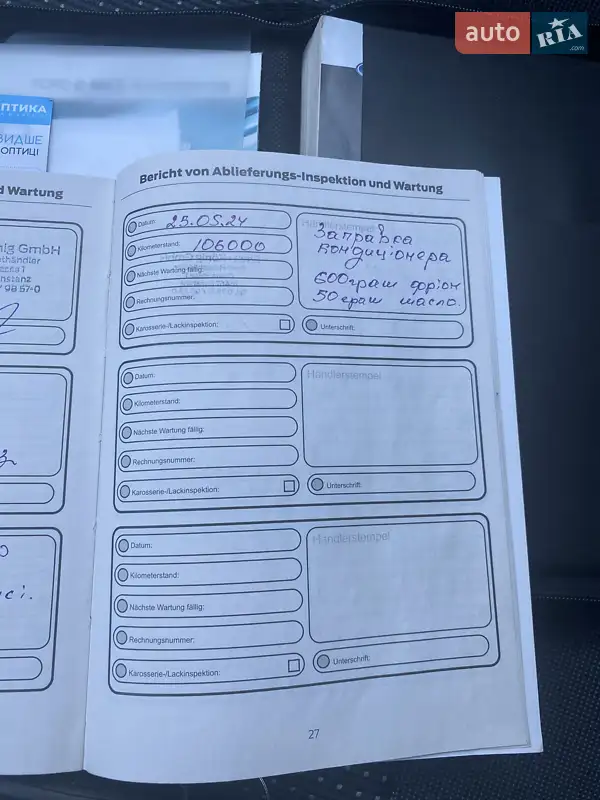 auto RIA .com
ОПТИКА
ОПТИЦІ
d Wartung
nig GmbH
Bericht von Ablieferungs-Inspektion und Wartung
Datum: 25.05.24
Kilometerstand: 106000
Nächste Wartung fällig:
Rechnungsnummer:
Karosserie-/Lackinspektion:
Händlerstempel
Заправка
кондиціонера
600грам фріон
50грам масло.
Unterschrift:
Datum:
Kilometerstand:
Nächste Wartung fällig:
Rechnungsnummer:
Karosserie-/Lackinspektion:
Händlerstempel
Unterschrift:
Datum:
Kilometerstand:
Nächste Wartung fällig:
Rechnungsnummer:
Karosserie-/Lackinspektion:
Händlerstempel
Unterschrift:
27